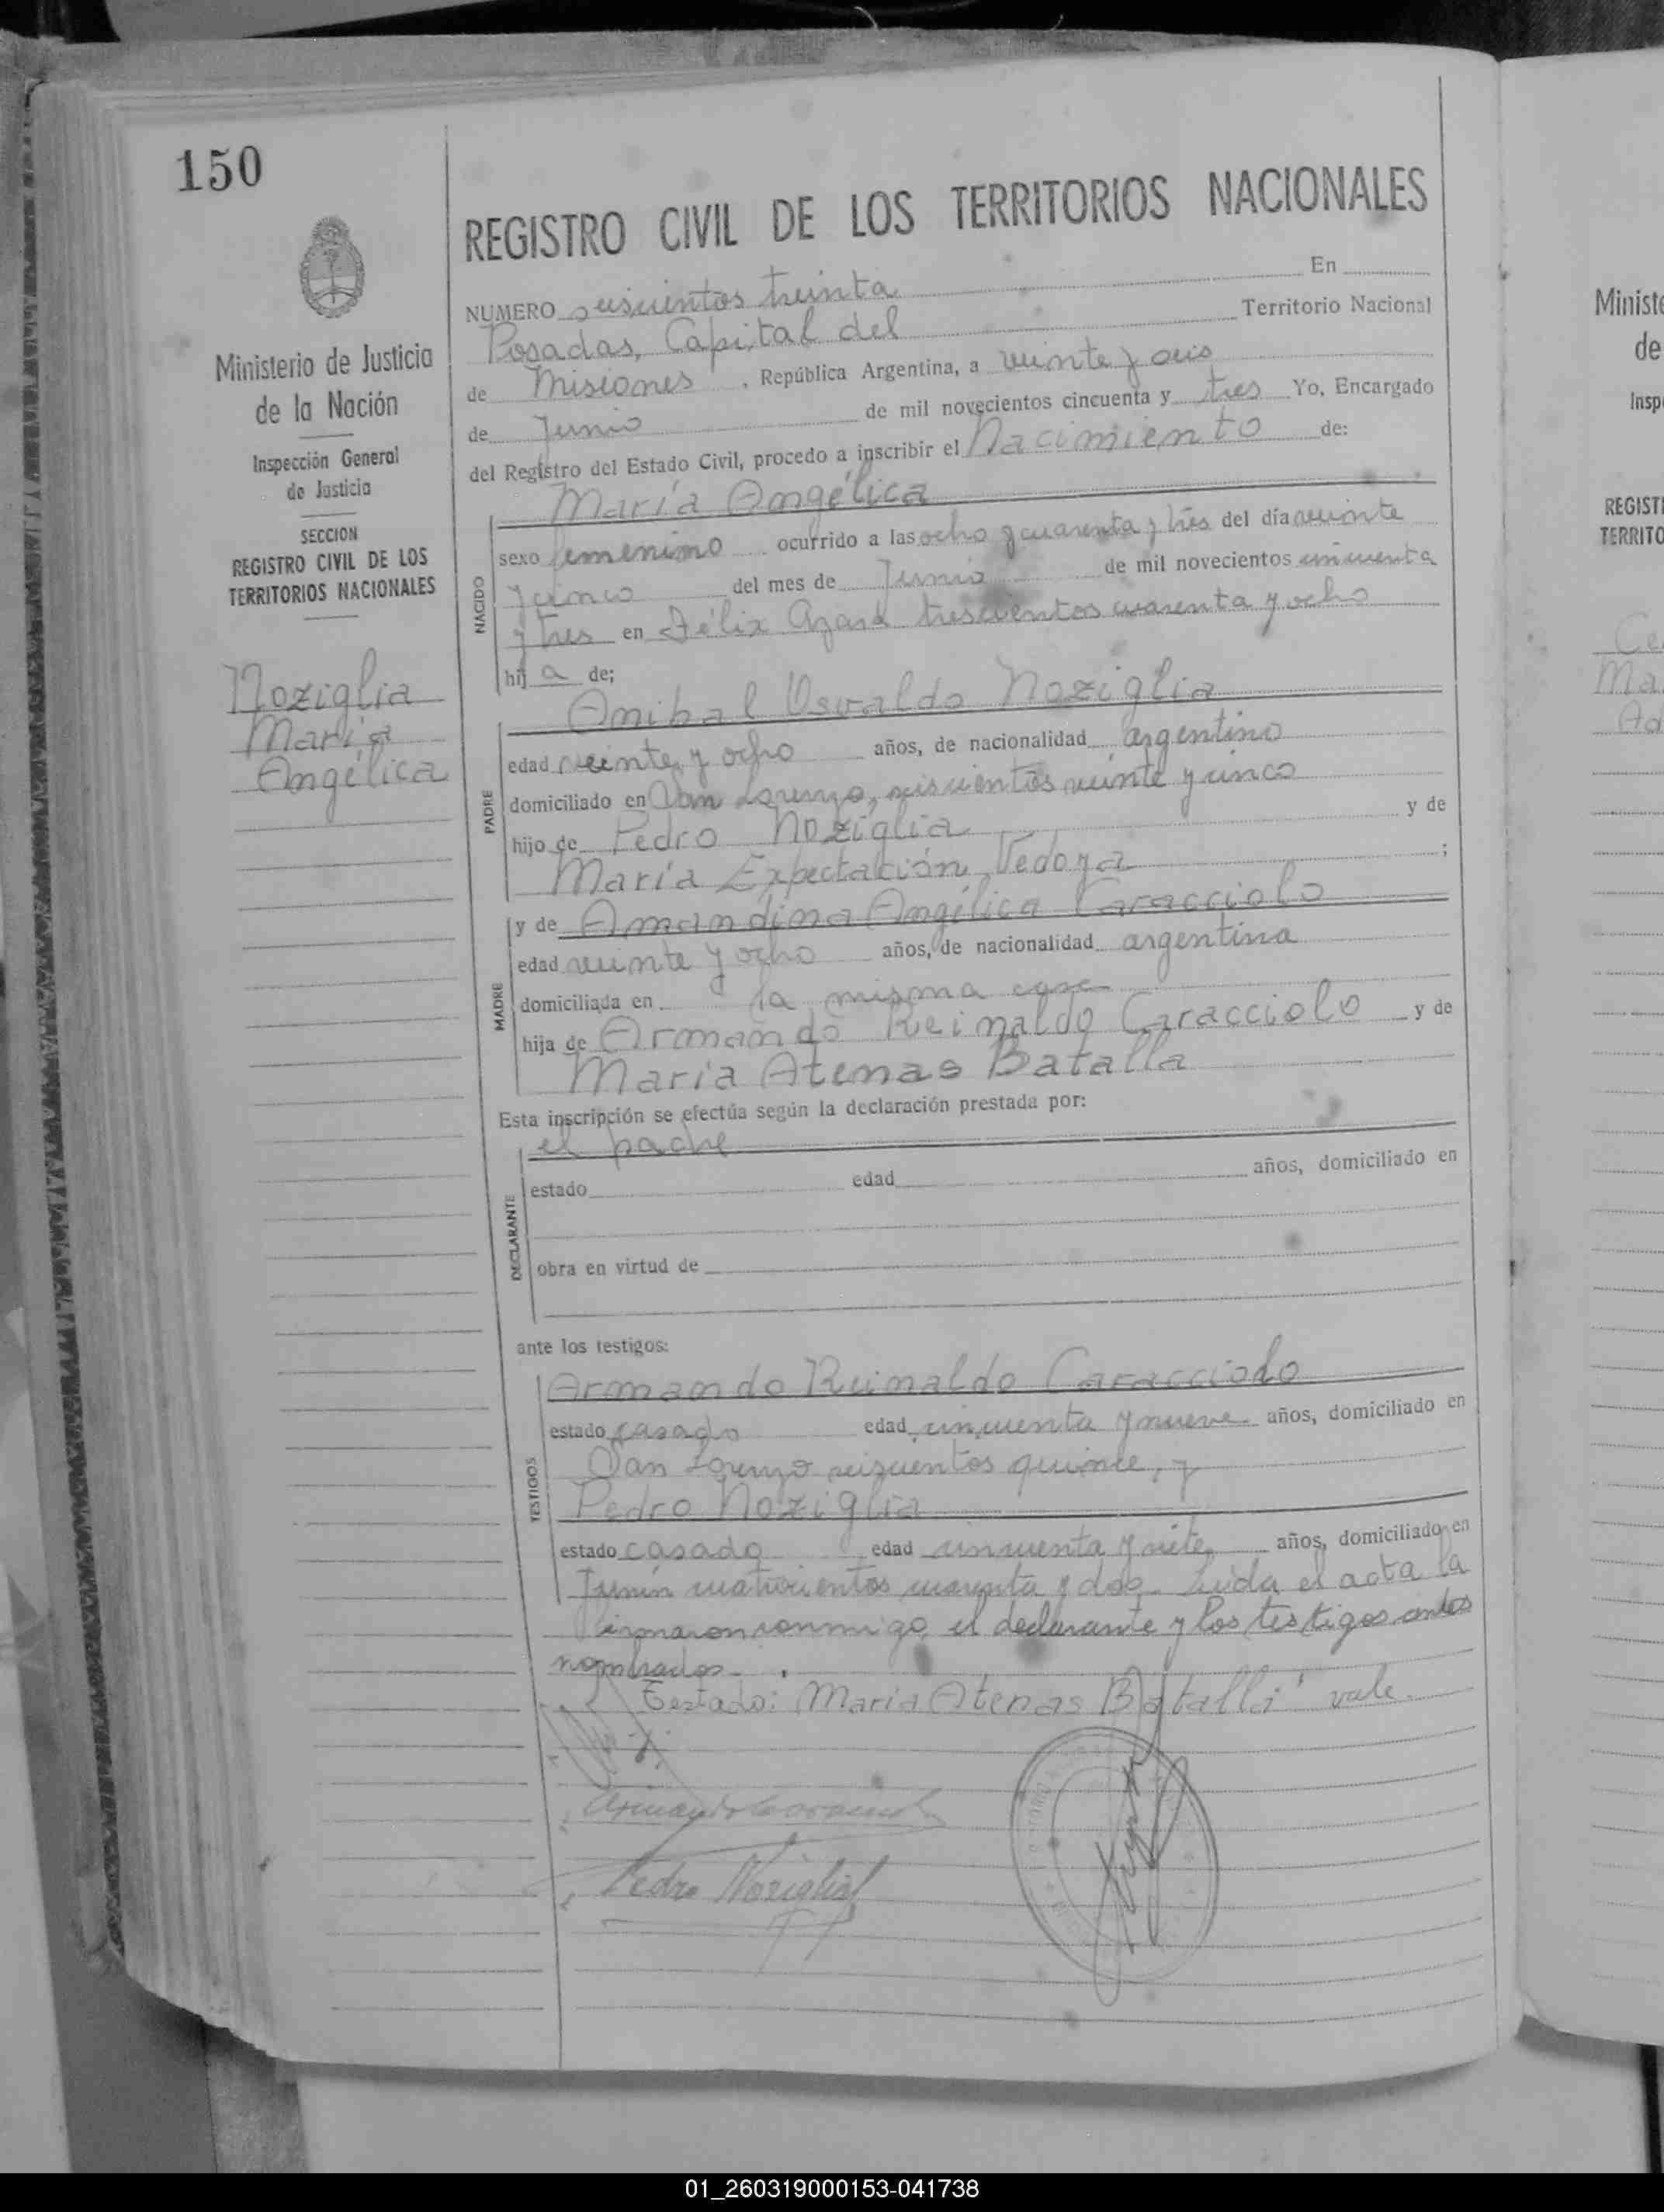 150
Ministerio de Justicia
de la Nación
Inspección General
de Justicia
SECCION
REGISTRO CIVIL DE LOS
TERRITORIOS NACIONALES
Noziglia
María
Angélica
REGISTRO CIVIL DE LOS TERRITORIOS NACIONALES
NUMERO seiscientos treinta En
Posadas, Capital del Territorio Nacional
de Misiones, República Argentina, a veinte y seis
de Junio de mil novecientos cincuenta y tres Yo, Encargado
del Registro del Estado Civil, procedo a inscribir el Nacimiento de:
NACIDO
María Angélica
sexo femenino ocurrido a las ocho y cuarenta y tres del día veinte
y cinco del mes de Junio de mil novecientos cincuenta
y tres en Félix Azara trescientos cuarenta y ocho
hij a de;
PADRE
Anibal Osvaldo Noziglia
edad veinte y ocho años, de nacionalidad argentino
domiciliado en San Lorenzo, seiscientos veinte y cinco
hijo de Pedro Noziglia y de
María Expectación Vedoya ;
MADRE
y de Amandina Angélica Caracciolo
edad veinte y ocho años, de nacionalidad argentina
domiciliada en la misma casa
hija de Armando Reinaldo Caracciolo y de
María Atenas Batalla
Esta inscripción se efectúa según la declaración prestada por:
DECLARANTE
el padre
estado edad años, domiciliado en
obra en virtud de
ante los testigos:
TESTIGOS
Armando Reinaldo Caracciolo
estado casado edad cincuenta y nueve años, domiciliado en
San Lorenzo seiscientos quince, y
Pedro Noziglia
estado casado edad cincuenta y siete años, domiciliado en
Junín cuatrocientos cuarenta y dos. Leida el acta la
firmaron conmigo, el declarante y los testigos antes
nombrados.
Testado: María Atenas Batalla" vale.
Armando Caracciolo
Pedro Noziglia
Ministe
de
Insp
REGISTR
TERRITO
Ce
Ma
Ad
01_260319000153-041738